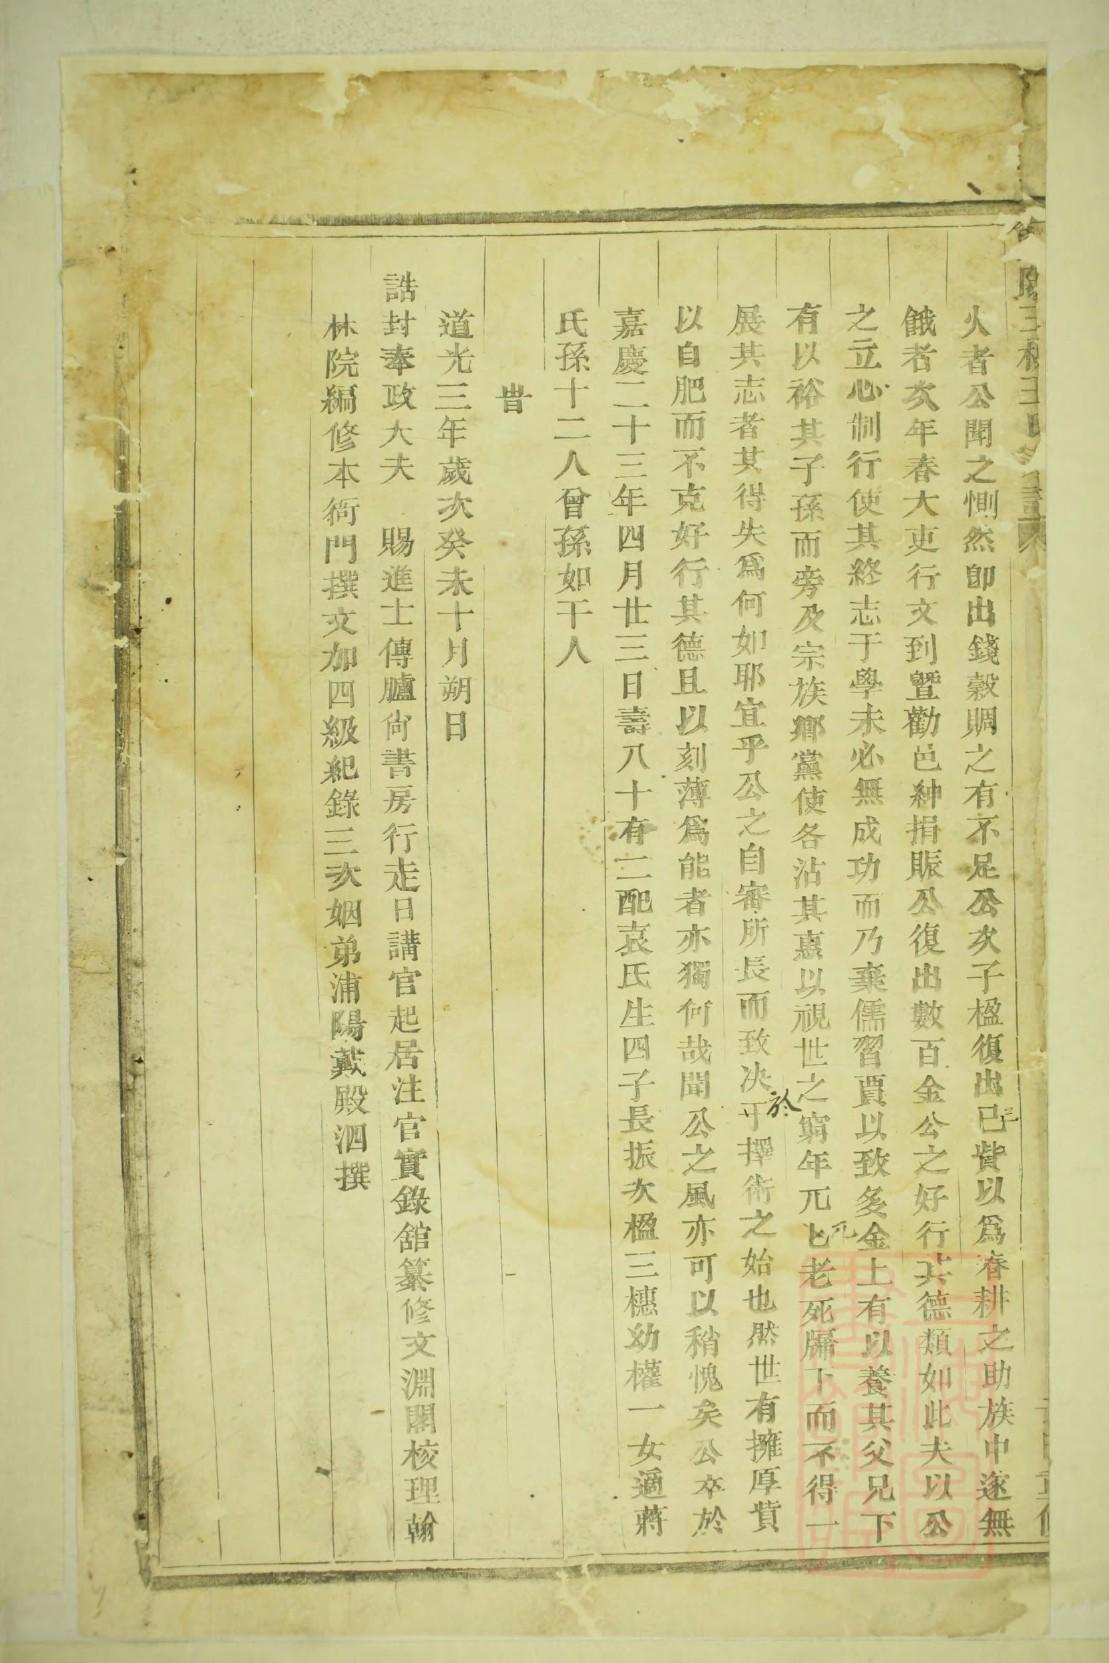 火者公聞之惻然卽出錢穀賙之有不足公次子楹復出己貲以爲春耕之助族中遂無
餓者次年春大吏行文到曁勸邑紳捐賑公復出數百金公之好行其德類如此夫以公
之立心制行使其終志于學未必無成功而乃棄儒習賈以致多金上有以養其父兄下
有以裕其子孫而旁及宗族鄉黨使各沾其惠以視世之窮年兀兀老死牖下而不得一
展其志者其得失爲何如耶宜乎公之自審所長而致决於擇術之始也然世有擁厚貲
以自肥而不克好行其德且以刻薄爲能者亦獨何哉聞公之風亦可以稍愧矣公卒於
嘉慶二十三年四月廿三日壽八十有二配袁氏生四子長振次楹三橞幼權一女適蔣
氏孫十二人曾孫如干人
旹
道光三年歲次癸未十月朔日
誥封奉政大夫 賜進士傳臚尙書房行走日講官起居注官實錄舘纂修文淵閣校理翰
林院編修本衙門撰文加四級紀錄三次姻弟浦陽戴殿泗撰